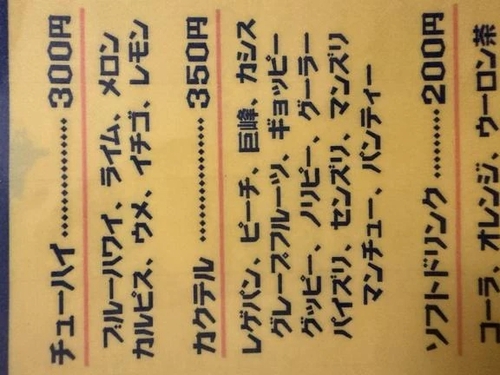 チューハイ………… 300円
ブルーハワイ、ライム、メロン
カルピス、ウメ、イチゴ、レモン
カクテル ………… 350円
レゲパン、ピーチ、巨峰、カシス
グレープフルーツ、ギョッピー
グッピー、ノリピー、グーラー
パイズリ、センズリ、マンズリ
マンチュー、パンティー
ソフトドリンク………200円
コーラ、オレンジ、ウーロン茶